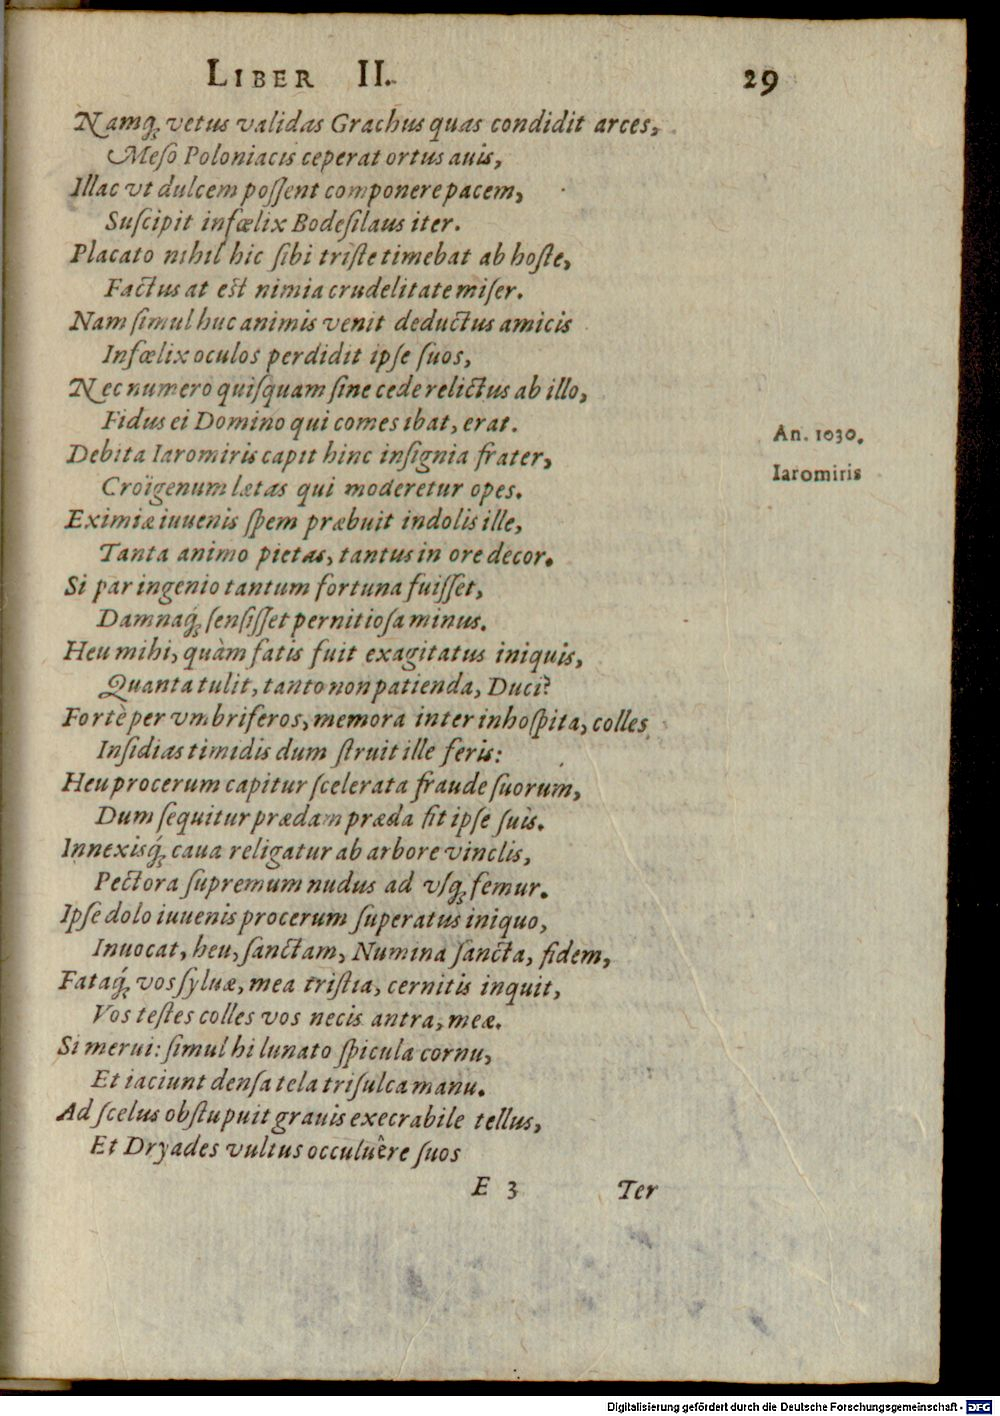 LIBER II. 29
Namq́; vetus validas Grachus quas condidit arces,
Meſo Poloniacis ceperat ortus auis,
Illac vt dulcem poſſent componere pacem,
Suſcipit infœlix Bodeſilaus iter.
Placato nihil hic ſibi triſte timebat ab hoſte,
Factus at est nimia crudelitate miſer.
Nam ſimul huc animis venit deductus amicis
Infœlix oculos perdidit ipſe ſuos,
Nec numero quiſquam ſine cede relictus ab illo,
Fidus ei Domino qui comes ibat, erat.
An. 1030.
Debita Iaromiris capit hinc inſignia frater,
Iaromiris
Croïgenum lætas qui moderetur opes.
Eximiæ iuuenis ſpem præbuit indolis ille,
Tanta animo pietas, tantus in ore decor.
Si par ingenio tantum fortuna fuiſſet,
Damnaq́; ſenſiſſet pernitioſa minus.
Heu mihi, quàm fatis fuit exagitatus iniquis,
Quanta tulit, tanto non patienda, Duci?
Fortè per vmbriferos, memora inter inhoſpita, colles
Inſidias timidis dum ſtruit ille feris:
Heu procerum capitur ſcelerata fraude ſuorum,
Dum ſequitur prædam præda fit ipſe ſuis.
Innexisq́; caua religatur ab arbore vinclis,
Pectora ſupremum nudus ad vſq; femur.
Ipſe dolo iuuenis procerum ſuperatus iniquo,
Inuocat, heu, ſanctam, Numina ſancta, fidem,
Fataq́; vos ſyluæ, mea tristia, cernitis inquit,
Vos teſtes colles vos necis antra, meæ.
Si merui: ſimul hi lunato ſpicula cornu,
Et iaciunt denſa tela triſulca manu.
Ad ſcelus obſtupuit grauis execrabile tellus,
Et Dryades vultus occuluêre ſuos
E 3 Ter
Digitalisierung gefördert durch die Deutsche Forschungsgemeinschaft - DFG